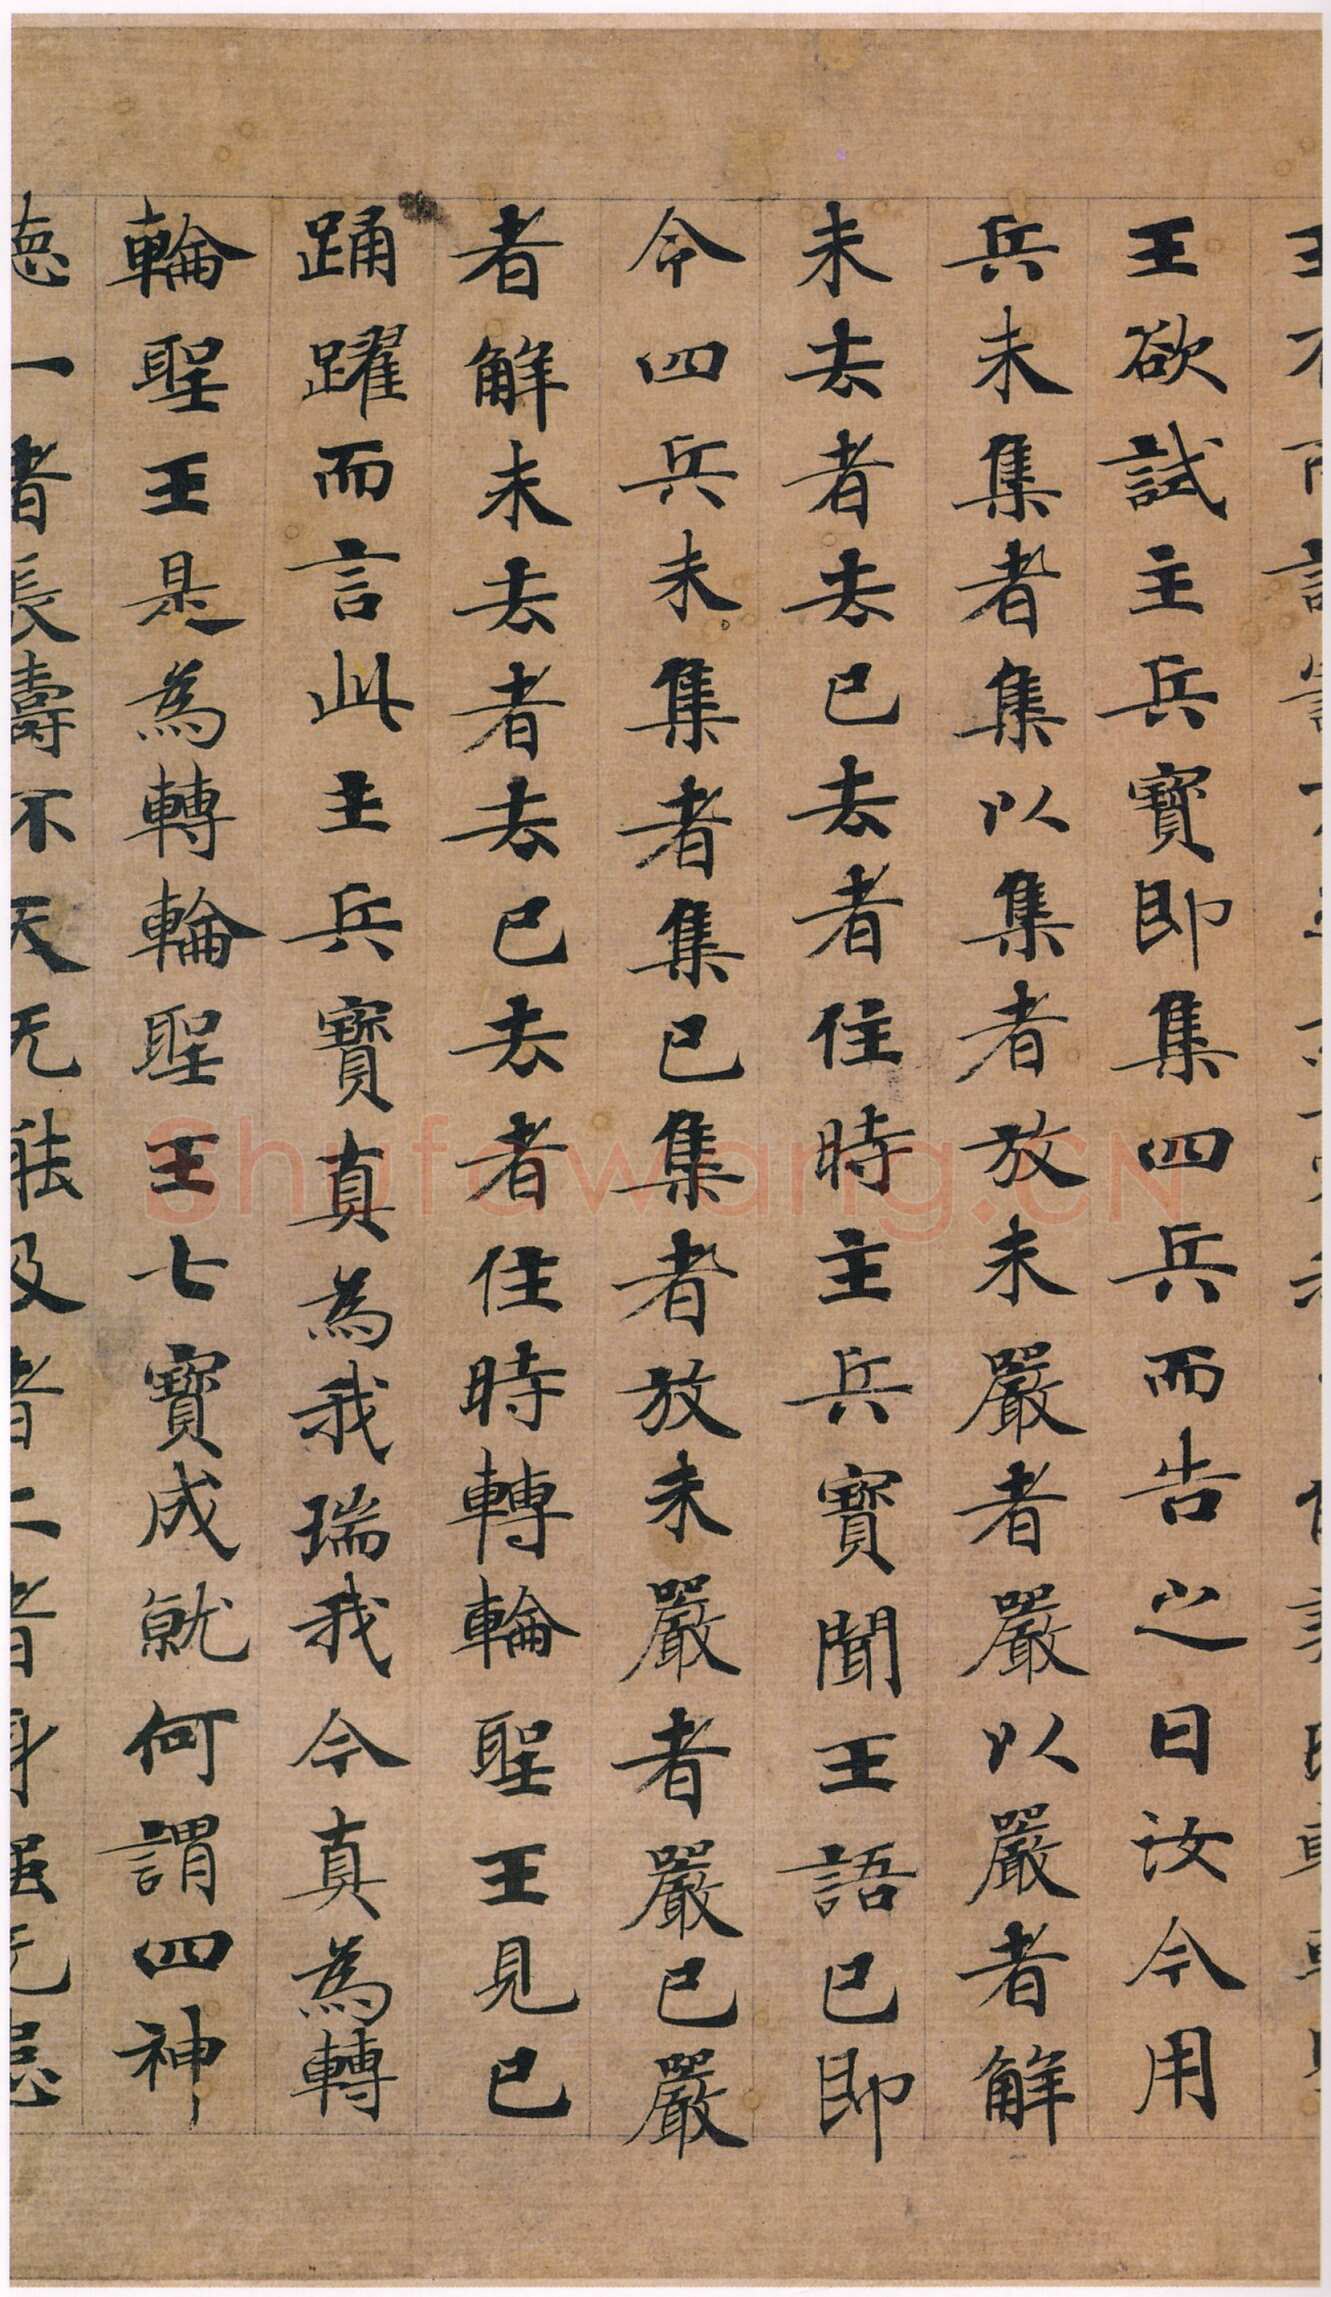 王欲試主兵寶即集四兵而告之日汝今用
兵未集者集以集者放未嚴者嚴以嚴者解
未去者去已去者住時主兵寶聞王語已即
令四兵未集者集已集者放未嚴者嚴已嚴
者解未去者去已去者住時轉輪聖王見已
踊躍而言此主兵寶真為我瑞我今真為轉
輪聖王是為轉輪聖王七寶成就何謂四神
德一者長壽不夭无能及者二者身強无
Shufawang.CN